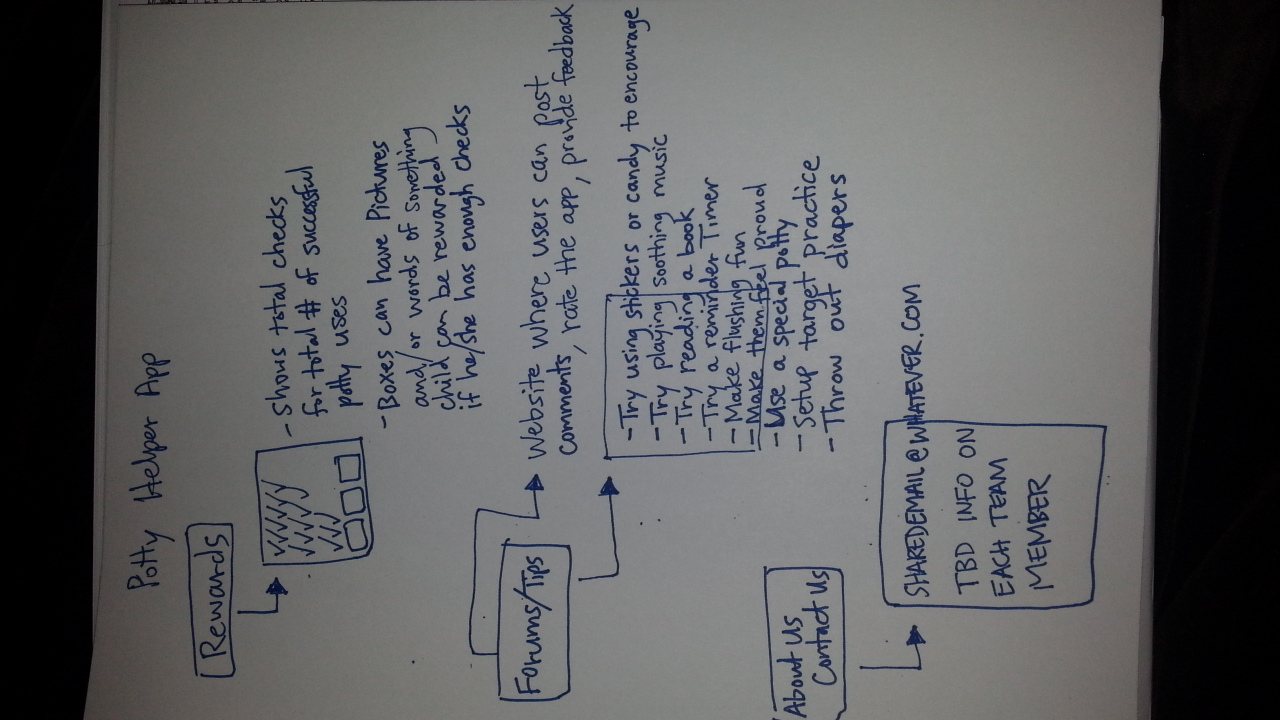 Potty Helper App
Rewards
- Shows total checks
for total # of successful
potty uses
- Boxes can have Pictures
and/or words of something
child can be rewarded
if he/she has enough checks
Forums/Tips
Website where users can post
comments, rate the app, provide feedback
- Try using stickers or candy to encourage
- Try playing soothing music
- Try reading a book
- Try a reminder Timer
- Make flushing fun
- Make them feel proud
- Use a special potty
- Setup target practice
- Throw out diapers
About Us
Contact Us
SHAREDEMAIL@WHATEVER.COM
TBD INFO ON
EACH TEAM
MEMBER